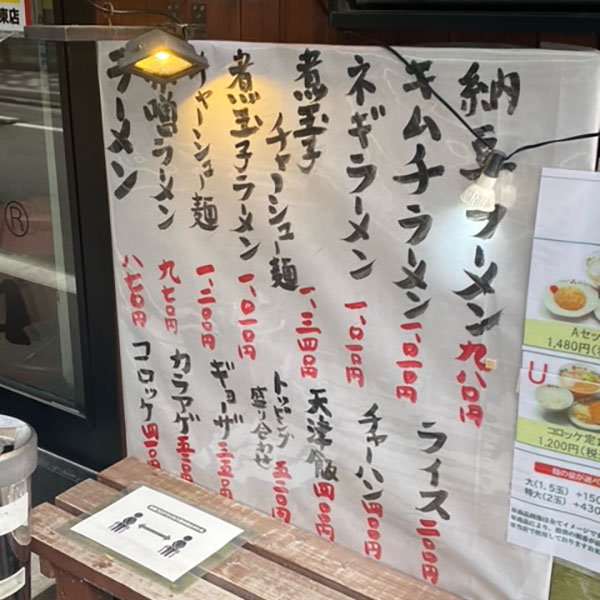 納豆ラーメン 九八〇円
キムチラーメン 一、〇一〇円
ネギラーメン 一、〇一〇円
煮玉子
チャーシュー麺 一、三四〇円
煮玉子ラーメン 一、〇一〇円
チャーシュー麺 一、二〇〇円
味噌ラーメン 九七〇円
ラーメン 八七〇円
ライス 二〇〇円
チャーハン
天津飯
トッピング
盛り合わせ
ギョーザ 三五〇円
カラアゲ
コロッケ
東店
®
Aセッ
1,480円(
コロッケ定
1,200円(税
麺の量が選べ
大(1.5玉) +150
特大(2玉) +430